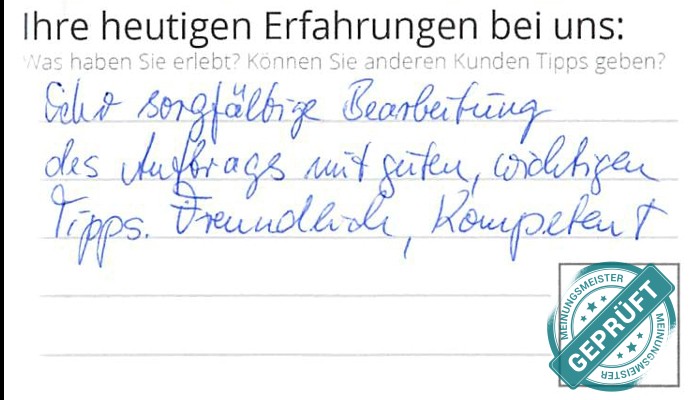 Ihre heutigen Erfahrungen bei uns:
Was haben Sie erlebt? Können Sie anderen Kunden Tipps geben?
Sehr sorgfältige Bearbeitung
des Auftrags mit guten, wichtigen
Tipps. Freundlich, Kompetent
MEINUNGSMEISTER
GEPRÜFT
MEINUNGSMEISTER